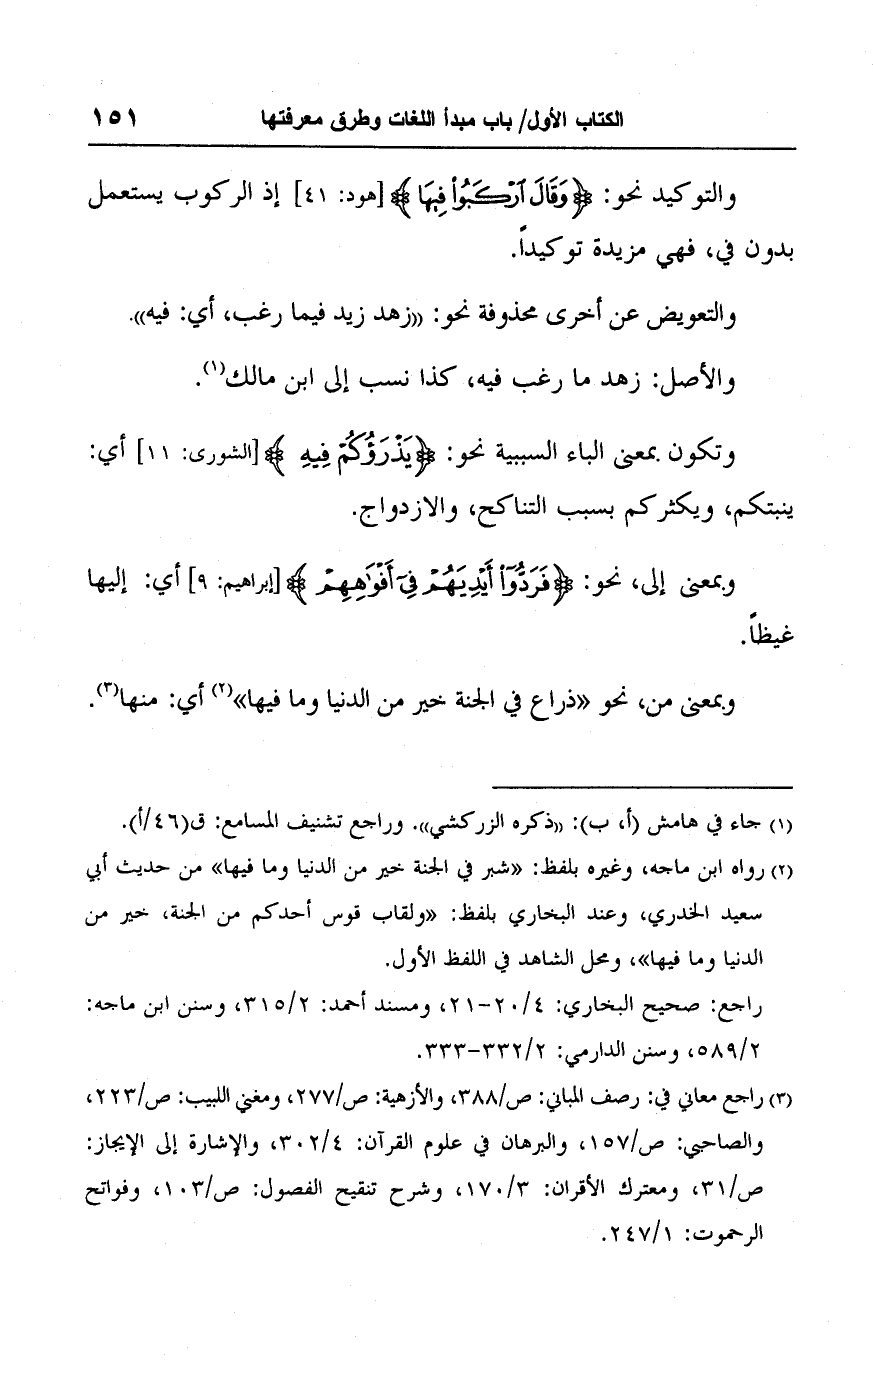 الكتاب الأول/ باب مبدأ اللغات وطرق معرفتها ١٥١
والتوكيد نحو: ﴿وَقَالَ ٱرْكَبُوا۟ فِيهَا﴾ [هود: ٤١] إذ الركوب يستعمل
بدون في، فهي مزيدة توكيداً.
والتعويض عن أخرى محذوفة نحو: ((زهد زيد فيما رغب، أي: فيه)).
والأصل: زهد ما رغب فيه، كذا نسب إلى ابن مالك(١).
وتكون بمعنى الباء السببية نحو: ﴿يَذْرَؤُكُمْ فِيهِ﴾ [الشورى: ١١] أي:
ينبتكم، ويكثركم بسبب التناكح، والازدواج.
وبمعنى إلى، نحو: ﴿فَرَدُّوٓا۟ أَيْدِيَهُمْ فِىٓ أَفْوَٰهِهِمْ﴾ [إبراهيم: ٩] أي: إليها
غيظاً.
وبمعنى من، نحو «ذراع في الجنة خير من الدنيا وما فيها»(٢) أي: منها(٣).
(١) جاء في هامش (أ، ب): ((ذكره الزركشي)). وراجع تشنيف المسامع: ق(٤٦/أ).
(٢) رواه ابن ماجه، وغيره بلفظ: «شبر في الجنة خير من الدنيا وما فيها» من حديث أبي
سعيد الخدري، وعند البخاري بلفظ: «ولقاب قوس أحدكم من الجنة، خير من
الدنيا وما فيها»، ومحل الشاهد في اللفظ الأول.
راجع: صحيح البخاري: ٢٠/٤-٢١، ومسند أحمد: ٣١٥/٢، وسنن ابن ماجه:
٥٨٩/٢، وسنن الدارمي: ٣٣٢/٢-٣٣٣.
(٣) راجع معاني في: رصف المباني: ص/٣٨٨، والأزهية: ص/٢٧٧، ومغني اللبيب: ص/٢٢٣،
والصاحبي: ص/١٥٧، والبرهان في علوم القرآن: ٣٠٢/٤، والإشارة إلى الإيجاز:
ص/٣١، ومعترك الأقران: ١٧٠/٣، وشرح تنقيح الفصول: ص/١٠٣، وفواتح
الرحموت: ٢٤٧/١.